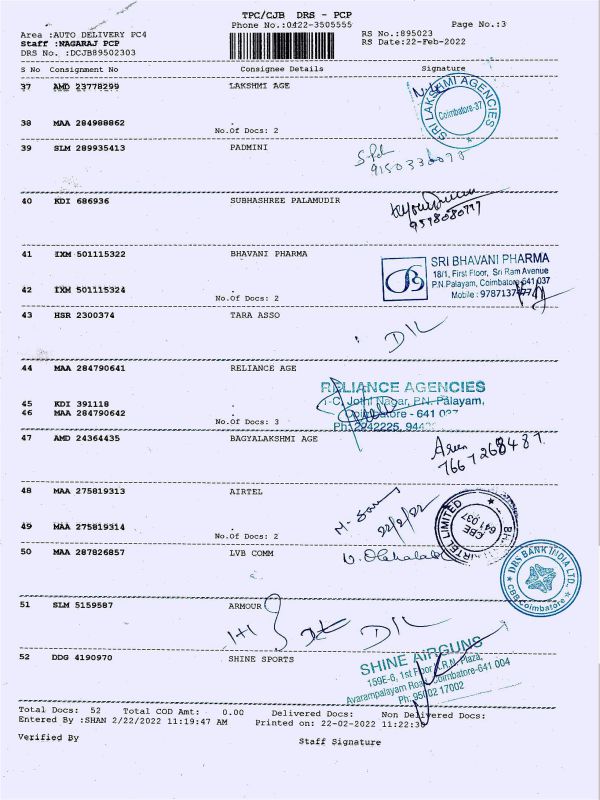 TPC/CJB DRS - PCP
Phone No.:0422-3505555
Page No.:3
Area :AUTO DELIVERY PC4
Staff :NAGARAJ PCP
DRS No. :DCJBB89502303
RS No.:895023
RS Date:22-Feb-2022
S No Consignment No Consignee Details Signature
37 AMD 23778299 LAKSHMI AGE
SRI LAKSHMI AGENCIES
Coimbatore-37
38 MAA 284988862 .
No.Of Docs: 2
39 SLM 289935413 PADMINI
40 KDI 686936 SUBHASHREE PALAMUDIR
9578080777
41 IXM 501115322 BHAVANI PHARMA
SRI BHAVANI PHARMA
18/1, First Floor, Sri Ram Avenue
P.N.Palayam, Coimbatore-641 037
Mobile :
42 IXM 501115324 .
No.Of Docs: 2
43 HSR 2300374 TARA ASSO
D/L
44 MAA 284790641 RELIANCE AGE
RELIANCE AGENCIES
1-C, Jothi Nagar, P.N. Palayam,
Coimbatore - 641 037
Ph: 2242225,
45 KDI 391118 .
46 MAA 284790642 .
No.Of Docs: 3
47 AMD 24364435 BAGYALAKSHMI AGE
7667268487
48 MAA 275819313 AIRTEL
22/2/22
BHARTI AIRTEL LIMITED
CBE
641 037
49 MAA 275819314 .
No.Of Docs: 2
50 MAA 287826857 LVB COMM
DBS BANK INDIA LTD.
CBB Coimbatore
51 SLM 5159587 ARMOUR
1+1
D/L
52 DDG 4190970 SHINE SPORTS
SHINE AIRGUNS
159E-6, 1st Floor K.R.N. Plaza,
Avarampalayam Road, Coimbatore-641 004
Ph: 95002 17002
Total Docs: 52 Total COD Amt: 0.00 Delivered Docs: Non Delivered Docs:
Entered By :SHAN 2/22/2022 11:19:47 AM Printed on: 22-02-2022 11:22:30
Verified By Staff Signature